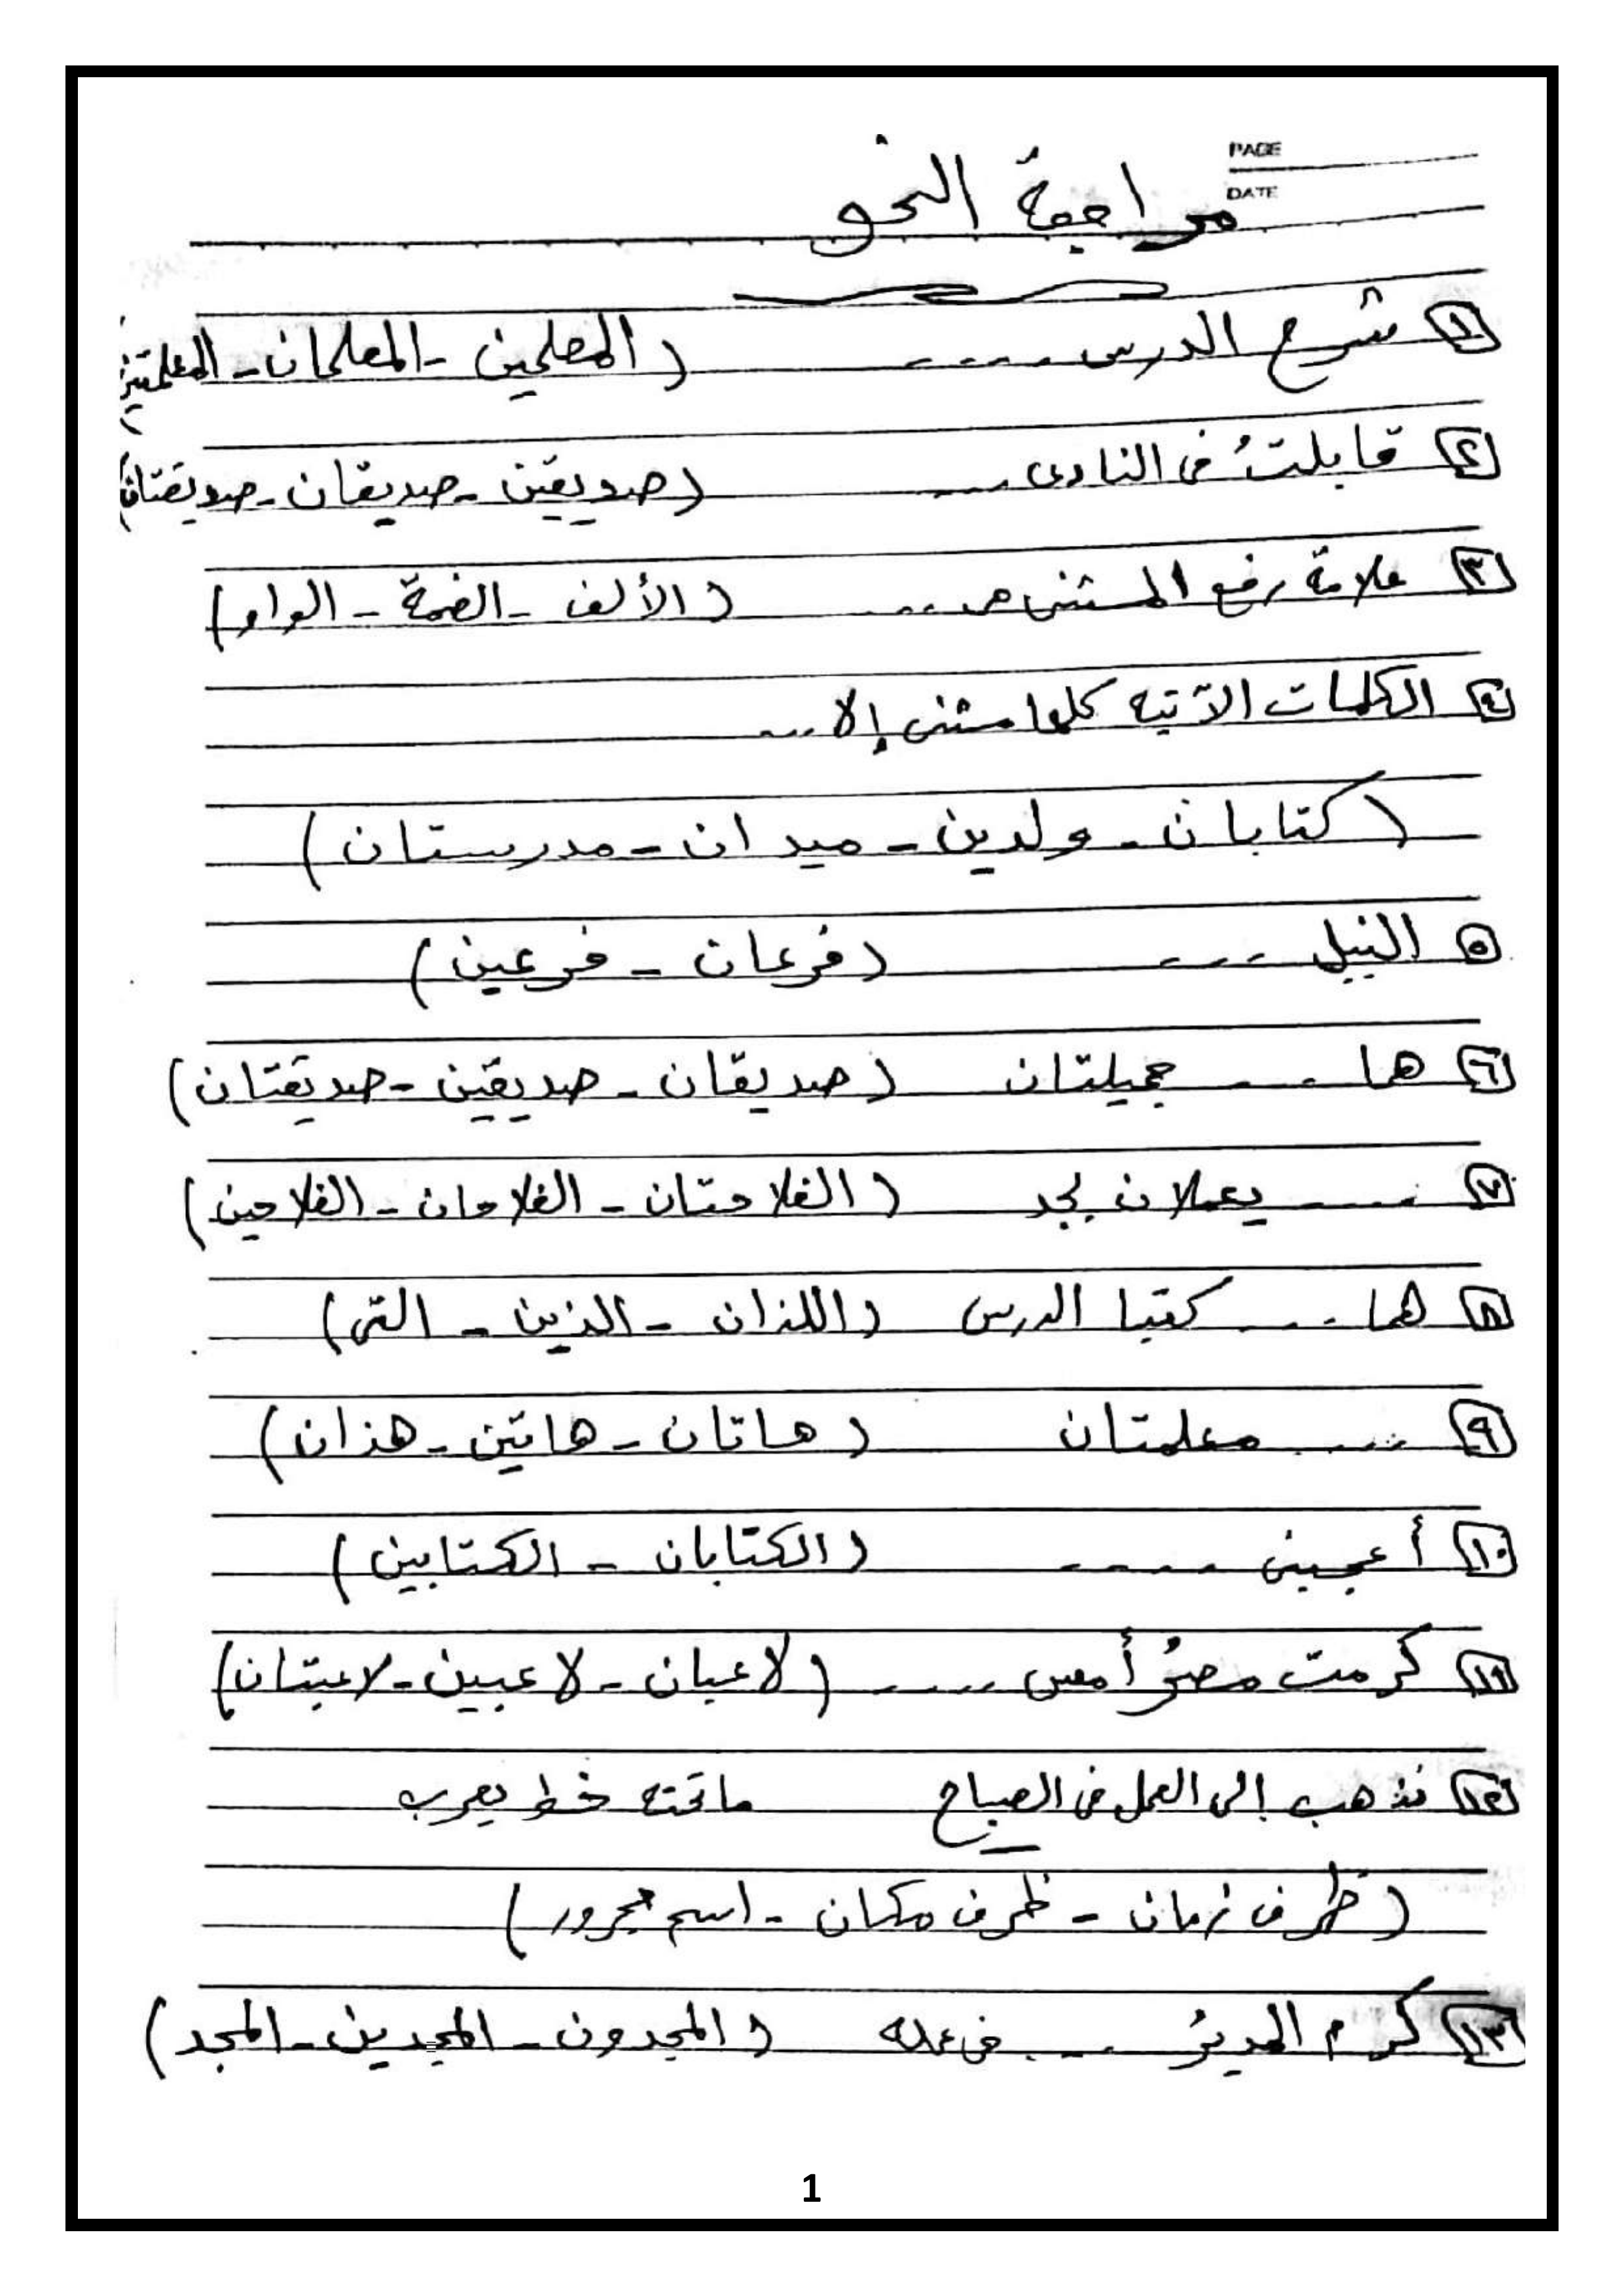 PAGE
DATE
مراجعة النحو
١ شرح الدرس ---- (المعلمين - المعلمان - المعلمتين)
٢ قابلتُ فى النادى ---- (صديقين - صديقان - صديقتان)
٣ علامة رفع المثنى هى ---- (الألف - الضمة - الواو)
٤ الكلمات الآتيه كلها مثنى إلا ...
(كتابان - ولدين - ميدان - مدرستان)
٥ النيل ---- (فرعان - فرعين)
٦ هما ---- جميلتان (صديقان - صديقين - صديقتان)
٧ ---- يعملان بجد (الفلاحتان - الفلاحان - الفلاحين)
٨ هما ---- كتبا الدرس (اللذان - الذين - التى)
٩ ---- معلمتان (هاتان - هاتين - هذان)
١٠ أعجبنى ---- (الكتابان - الكتابين)
١١ كرمت مصرُ أمس ---- (لاعبان - لاعبين - لاعبتان)
١٢ نذهب إلى العمل فى الصباح ماتحته خط يعرب
(ظرف زمان - ظرف مكان - اسم مجرور)
١٣ كرم المديرُ ---- فى عمله (المجدون - المجدين - المجد)
1